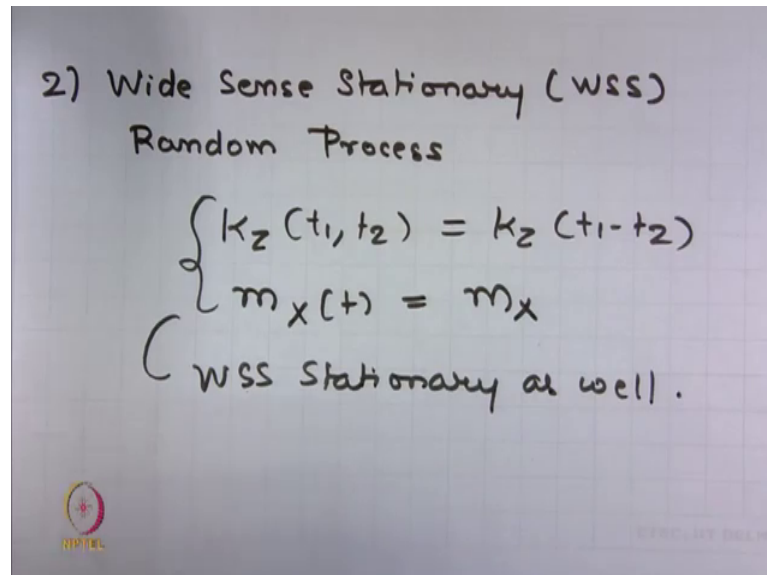 2) Wide Sense Stationary (WSS)
Random Process
kz (t1, t2) = kz (t1-t2)
mx(t) = mx
WSS Stationary as well.
NPTEL
ETSC, IIT DELHI